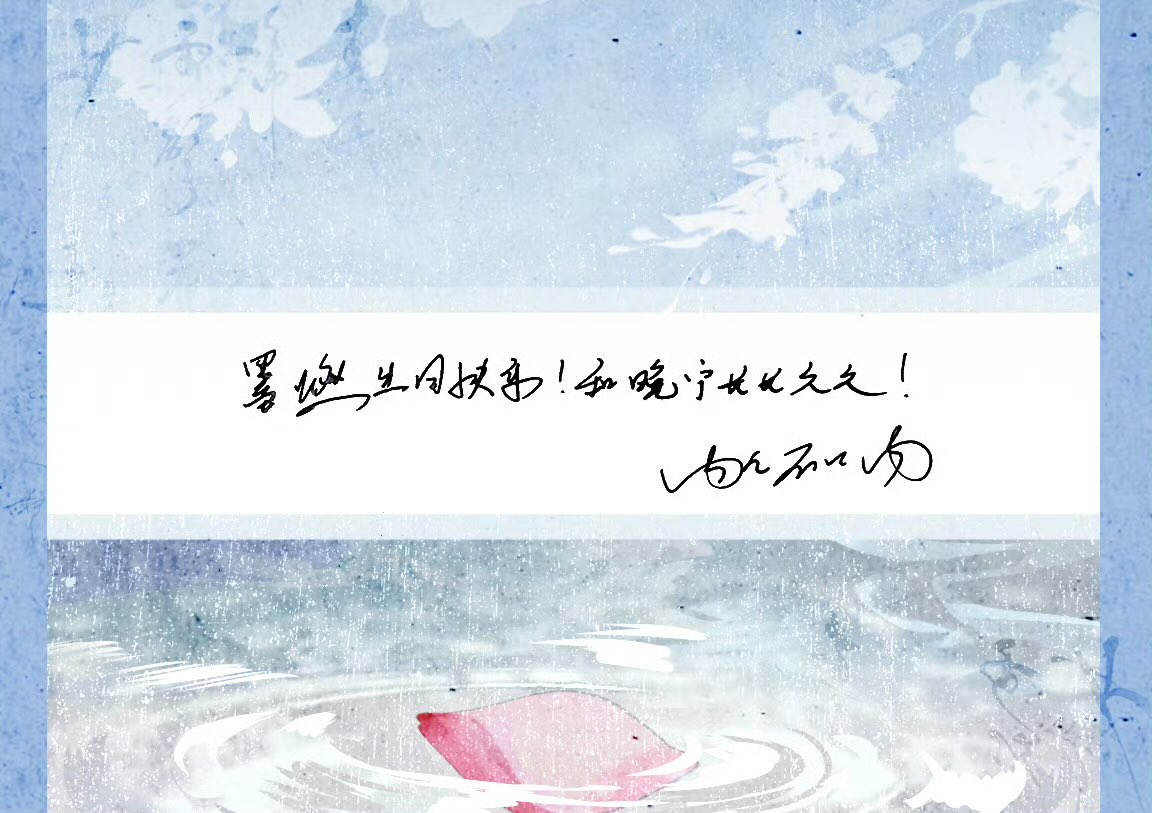 墨燃生日快乐！和晚宁长长久久！
肉包不吃肉